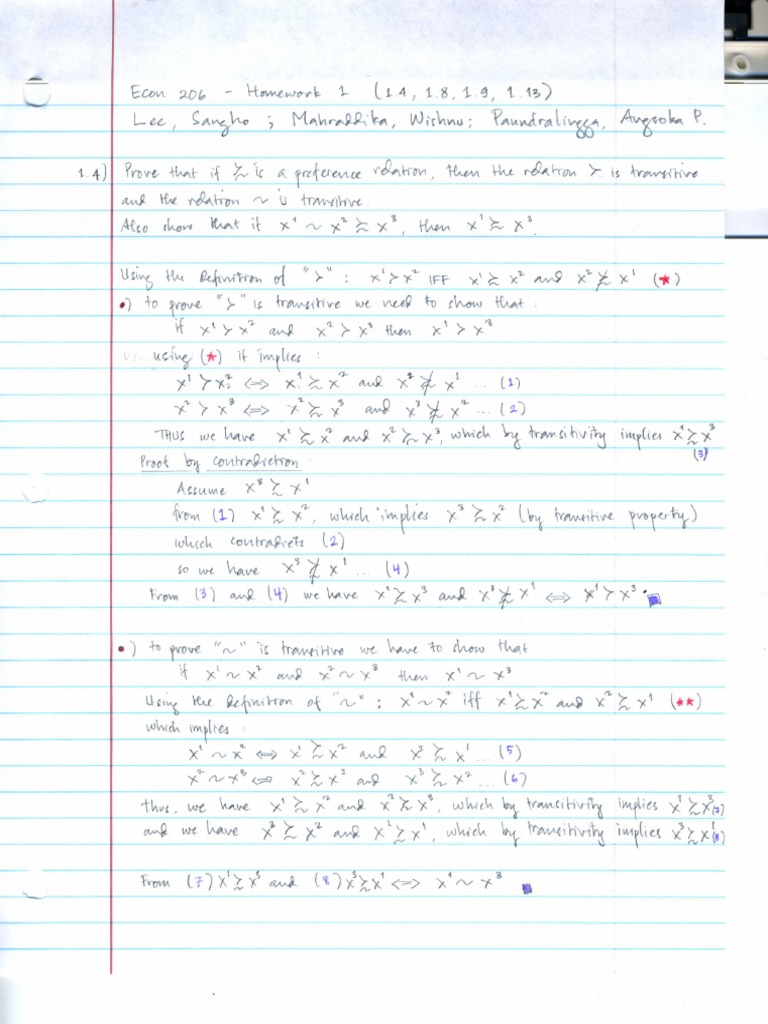 Econ 206 - Homework 1 (1.4, 1.8, 1.9, 1.13)
Lee, Sangho ; Mahraddika, Wishnu; Paundralingga, Anggoka P.
1.4) Prove that if ≿ is a preference relation, then the relation ≻ is transitive
and the relation ~ is transitive.
Also show that if x¹ ~ x² ≿ x³, then x¹ ≿ x³.
Using the definition of "≻" : x¹ ≻ x² IFF x¹ ≿ x² and x² ⋡ x¹ (★)
•) to prove "≻" is transitive we need to show that :
if x¹ ≻ x² and x² ≻ x³ then x¹ ≻ x³
using (★) it implies :
x¹ ≻ x² ⟺ x¹ ≿ x² and x² ⋡ x¹ ... (1)
x² ≻ x³ ⟺ x² ≿ x³ and x³ ⋡ x² ... (2)
THUS we have x¹ ≿ x² and x² ≿ x³, which by transitivity implies x¹ ≿ x³
(3)
Proof by contradiction
Assume x³ ≿ x¹
from (1) x¹ ≿ x², which implies x³ ≿ x² (by transitive property)
which contradicts (2)
so we have x³ ⋡ x¹ ... (4)
From (3) and (4) we have x¹ ≿ x³ and x³ ⋡ x¹ ⟺ x¹ ≻ x³ . ■
•) to prove "~" is transitive we have to show that
if x¹ ~ x² and x² ~ x³ then x¹ ~ x³
Using the definition of "~" : x¹ ~ x² iff x¹ ≿ x² and x² ≿ x¹ (★★)
which implies :
x¹ ~ x² ⟺ x¹ ≿ x² and x² ≿ x¹ ... (5)
x² ~ x³ ⟺ x² ≿ x³ and x³ ≿ x² ... (6)
thus, we have x¹ ≿ x² and x² ≿ x³, which by transitivity implies x¹ ≿ x³ (7)
and we have x³ ≿ x² and x² ≿ x¹, which by transitivity implies x³ ≿ x¹ (8)
From (7) x¹ ≿ x³ and (8) x³ ≿ x¹ ⟺ x¹ ~ x³ ■